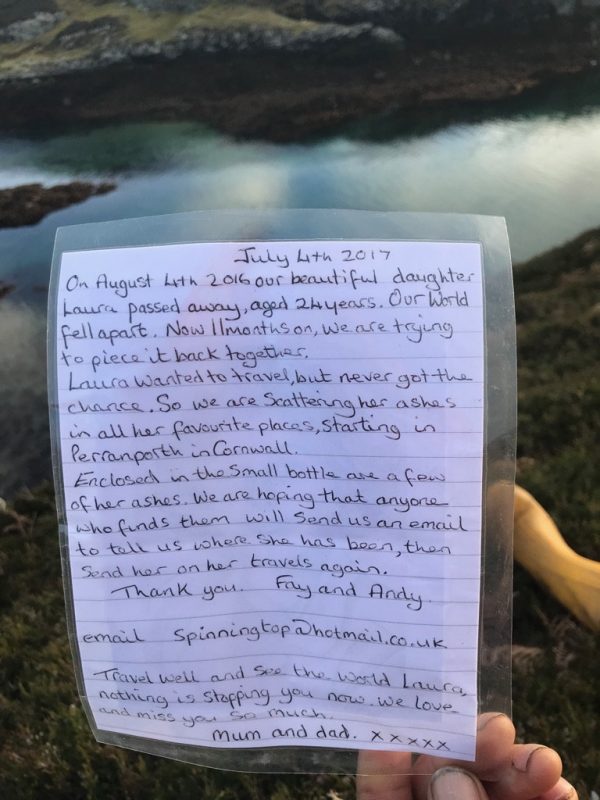 July 4th 2017
On August 4th 2016 our beautiful daughter
Laura passed away, aged 24 years. Our World
fell apart. Now 11 months on, we are trying
to piece it back together.
Laura wanted to travel, but never got the
chance. So we are scattering her ashes
in all her favourite places, starting in
Perranporth in Cornwall.
Enclosed in the small bottle are a few
of her ashes. We are hoping that anyone
who finds them will send us an email
to tell us where she has been, then
send her on her travels again.
Thank you. Fay and Andy.
email spinningtop@hotmail.co.uk
Travel well and see the world Laura,
nothing is stopping you now. We love
and miss you so much.
Mum and dad. xxxxx